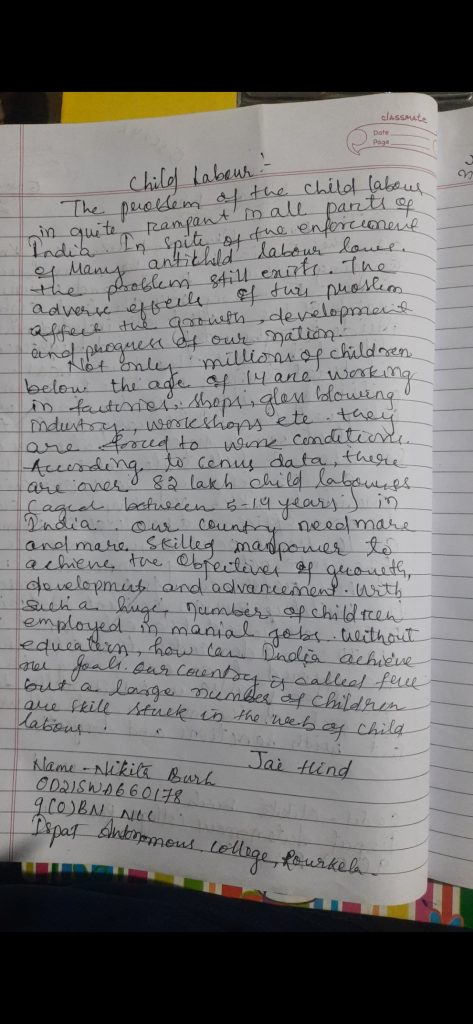 classmate
Date
Page
Child Labour :-
The problem of the child labour
in quite rampant in all parts of
India. In spite of the enforcement
of Many antichild labour laws.
the problem still exists. The
adverse effects of this problem
affect the growth, development
and progress of our nation.
Not only millions of children
below the age of 14 are working
in factories, shops, glass blowing
industry, workshops etc. they
are forced to work conditions.
According to cenus data, there
are over 82 lakh child labourers
(aged between 5-14 years) in
India. Our country need more
and more skilled manpower to
achieve the objectives of growth,
development and advancement. With
such a huge number of children
employed in manial jobs. Without
education, how can India achieve
goals. Our country is called free
but a large number of children
are still stuck in the web of child
labour.
Jai Hind
Name - Nikita Burh
OD21SWA660178
9(O)BN NCC
Ispat Autonomous college, Rourkela